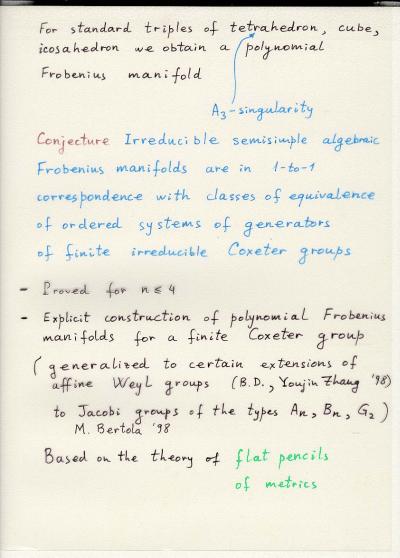 For standard triples of tetrahedron, cube,
icosahedron we obtain a polynomial
Frobenius manifold
A₃-singularity
Conjecture Irreducible semisimple algebraic
Frobenius manifolds are in 1-to-1
correspondence with classes of equivalence
of ordered systems of generators
of finite irreducible Coxeter groups
- Proved for n ≤ 4
- Explicit construction of polynomial Frobenius
manifolds for a finite Coxeter group
(generalized to certain extensions of
affine Weyl groups (B.D., Youjin Zhang '98)
to Jacobi groups of the types An, Bn, G₂)
M. Bertola '98
Based on the theory of flat pencils
of metrics